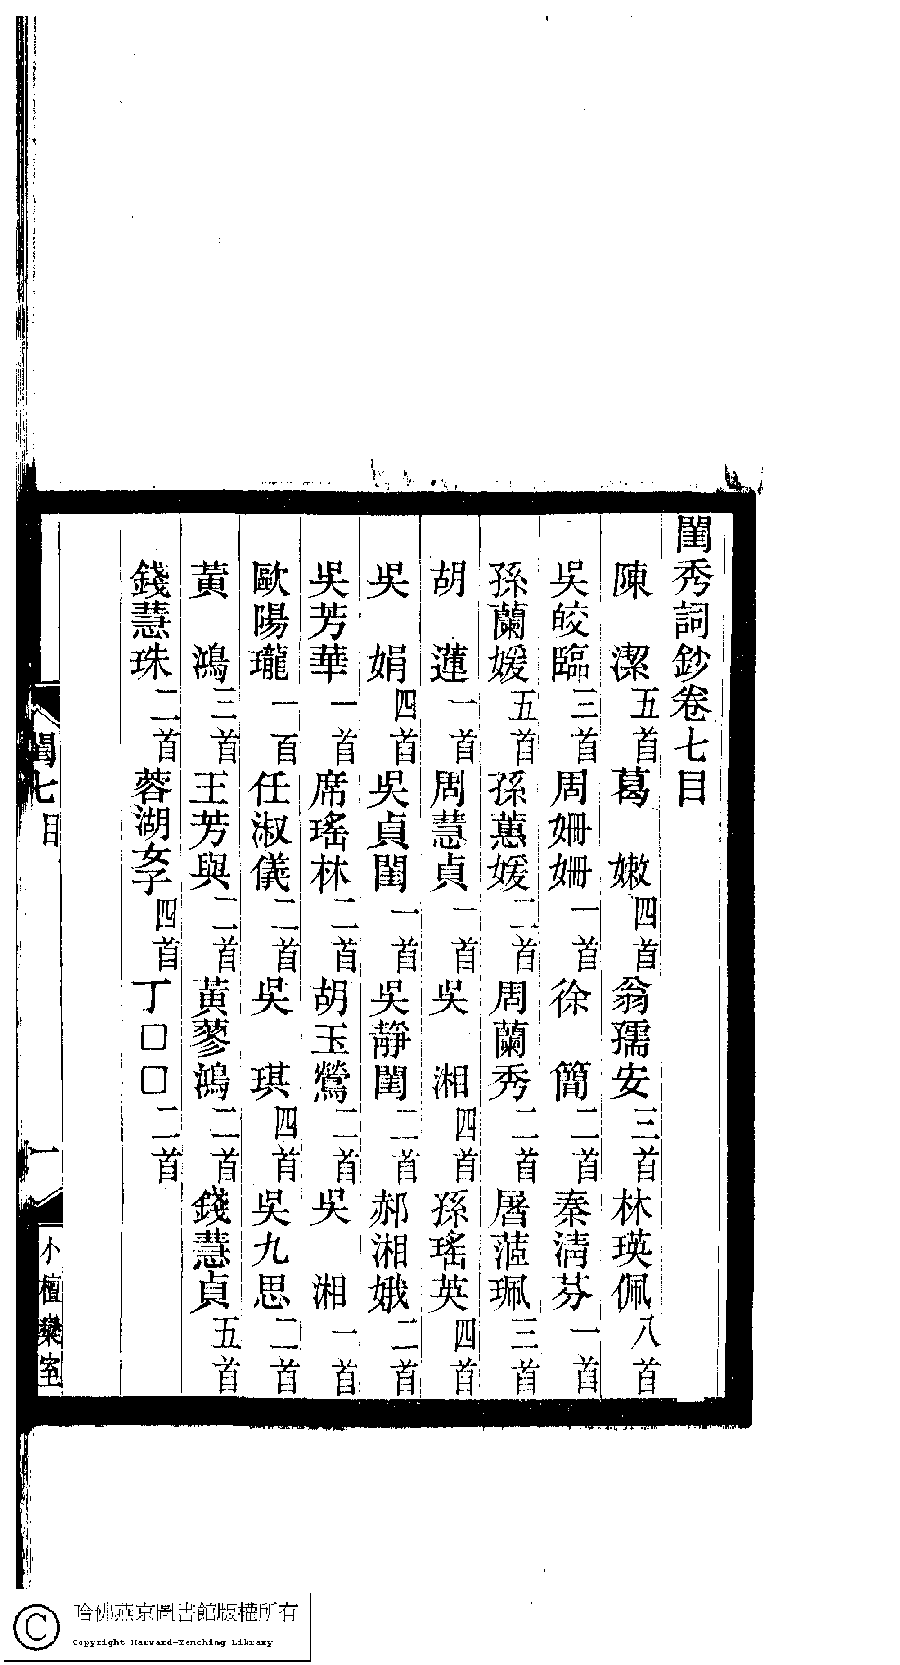 閨秀詞鈔卷七目
陳　潔五首葛　嫩四首翁孺安三首林瑛佩八首
吳皎臨三首周姍姍一首徐　簡二首秦清芬一首
孫蘭媛五首孫蕙媛二首周蘭秀二首屠茝珮三首
胡　蓮一首周慧貞一首吳　湘四首孫瑤英四首
吳　娟四首吳貞閨一首吳靜閨二首郝湘娥二首
吳芳華一首席瑤林二首胡玉鶯二首吳　湘一首
歐陽瓏一首任淑儀二首吳　琪四首吳九思二首
黃　鴻三首王芳與二首黃蓼鴻二首錢慧貞五首
錢慧珠二首蓉湖女子四首丁□□二首
閨七目
一
小檀欒室
哈佛燕京圖書館版權所有
Copyright Harvard-Yenching Library